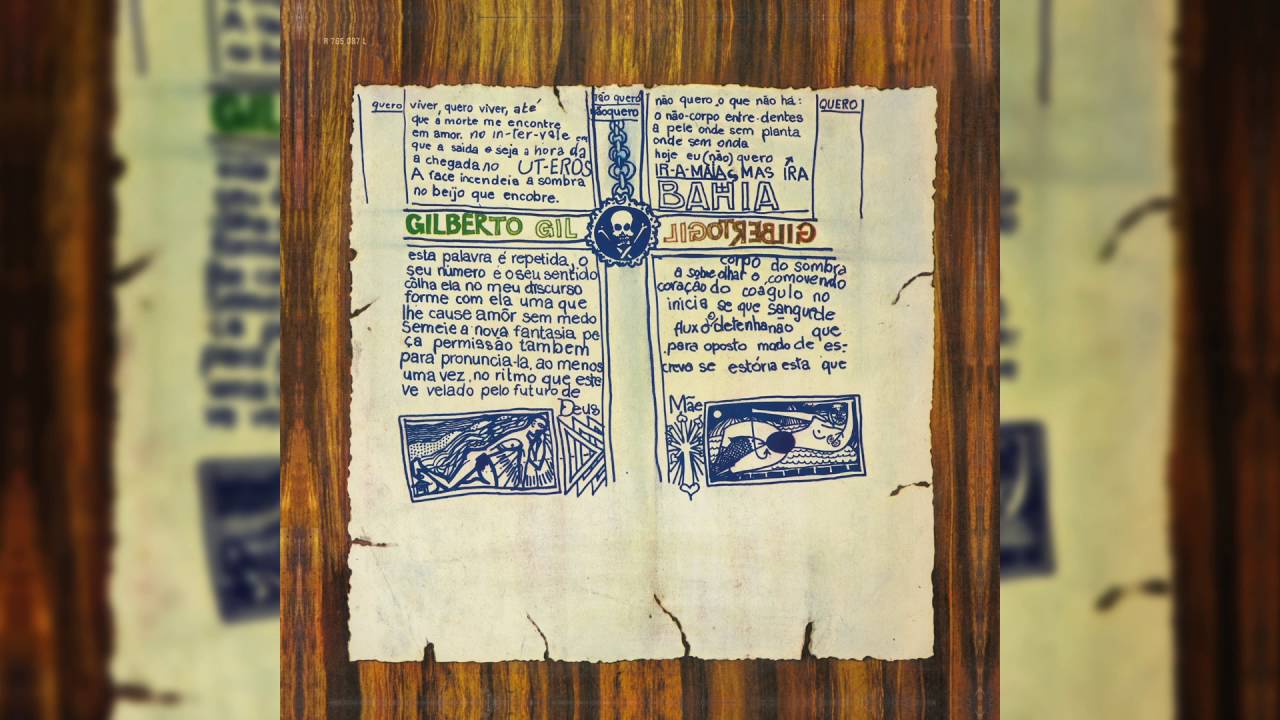 R 765.087 L
quero
viver, quero viver, até
que a morte me encontre
em amor. no in-ter-vale em
que a saida e seja a hora da
a chegada no UT-EROS
A face incendeia a sombra
no beijo que encobre.
não quero
nãoquero
não quero o que não há:
o não-corpo entre-dentes
a pele onde sem planta
onde sem onda
hoje eu (não) quero
IR-A-MAIAS MAS IRA
BAHIA
QUERO
GILBERTO GIL
GILBERTO GIL
esta palavra é repetida, o
seu número é o seu sentido
côlha ela no meu discurso
forme com ela uma que
lhe cause amôr sem medo
Semeie a nova fantasia pe
ça permissão tambem
para pronuncia-la, ao menos
uma vez, no ritmo que este
ve velado pelo futuro de
Deus
corpo do sombra
a sobre olhar o comovendo
coração do coágulo no
inicia se que sangue de
fluxo detenha não que
para oposto modo de es-
crevo se estória esta que
Mãe